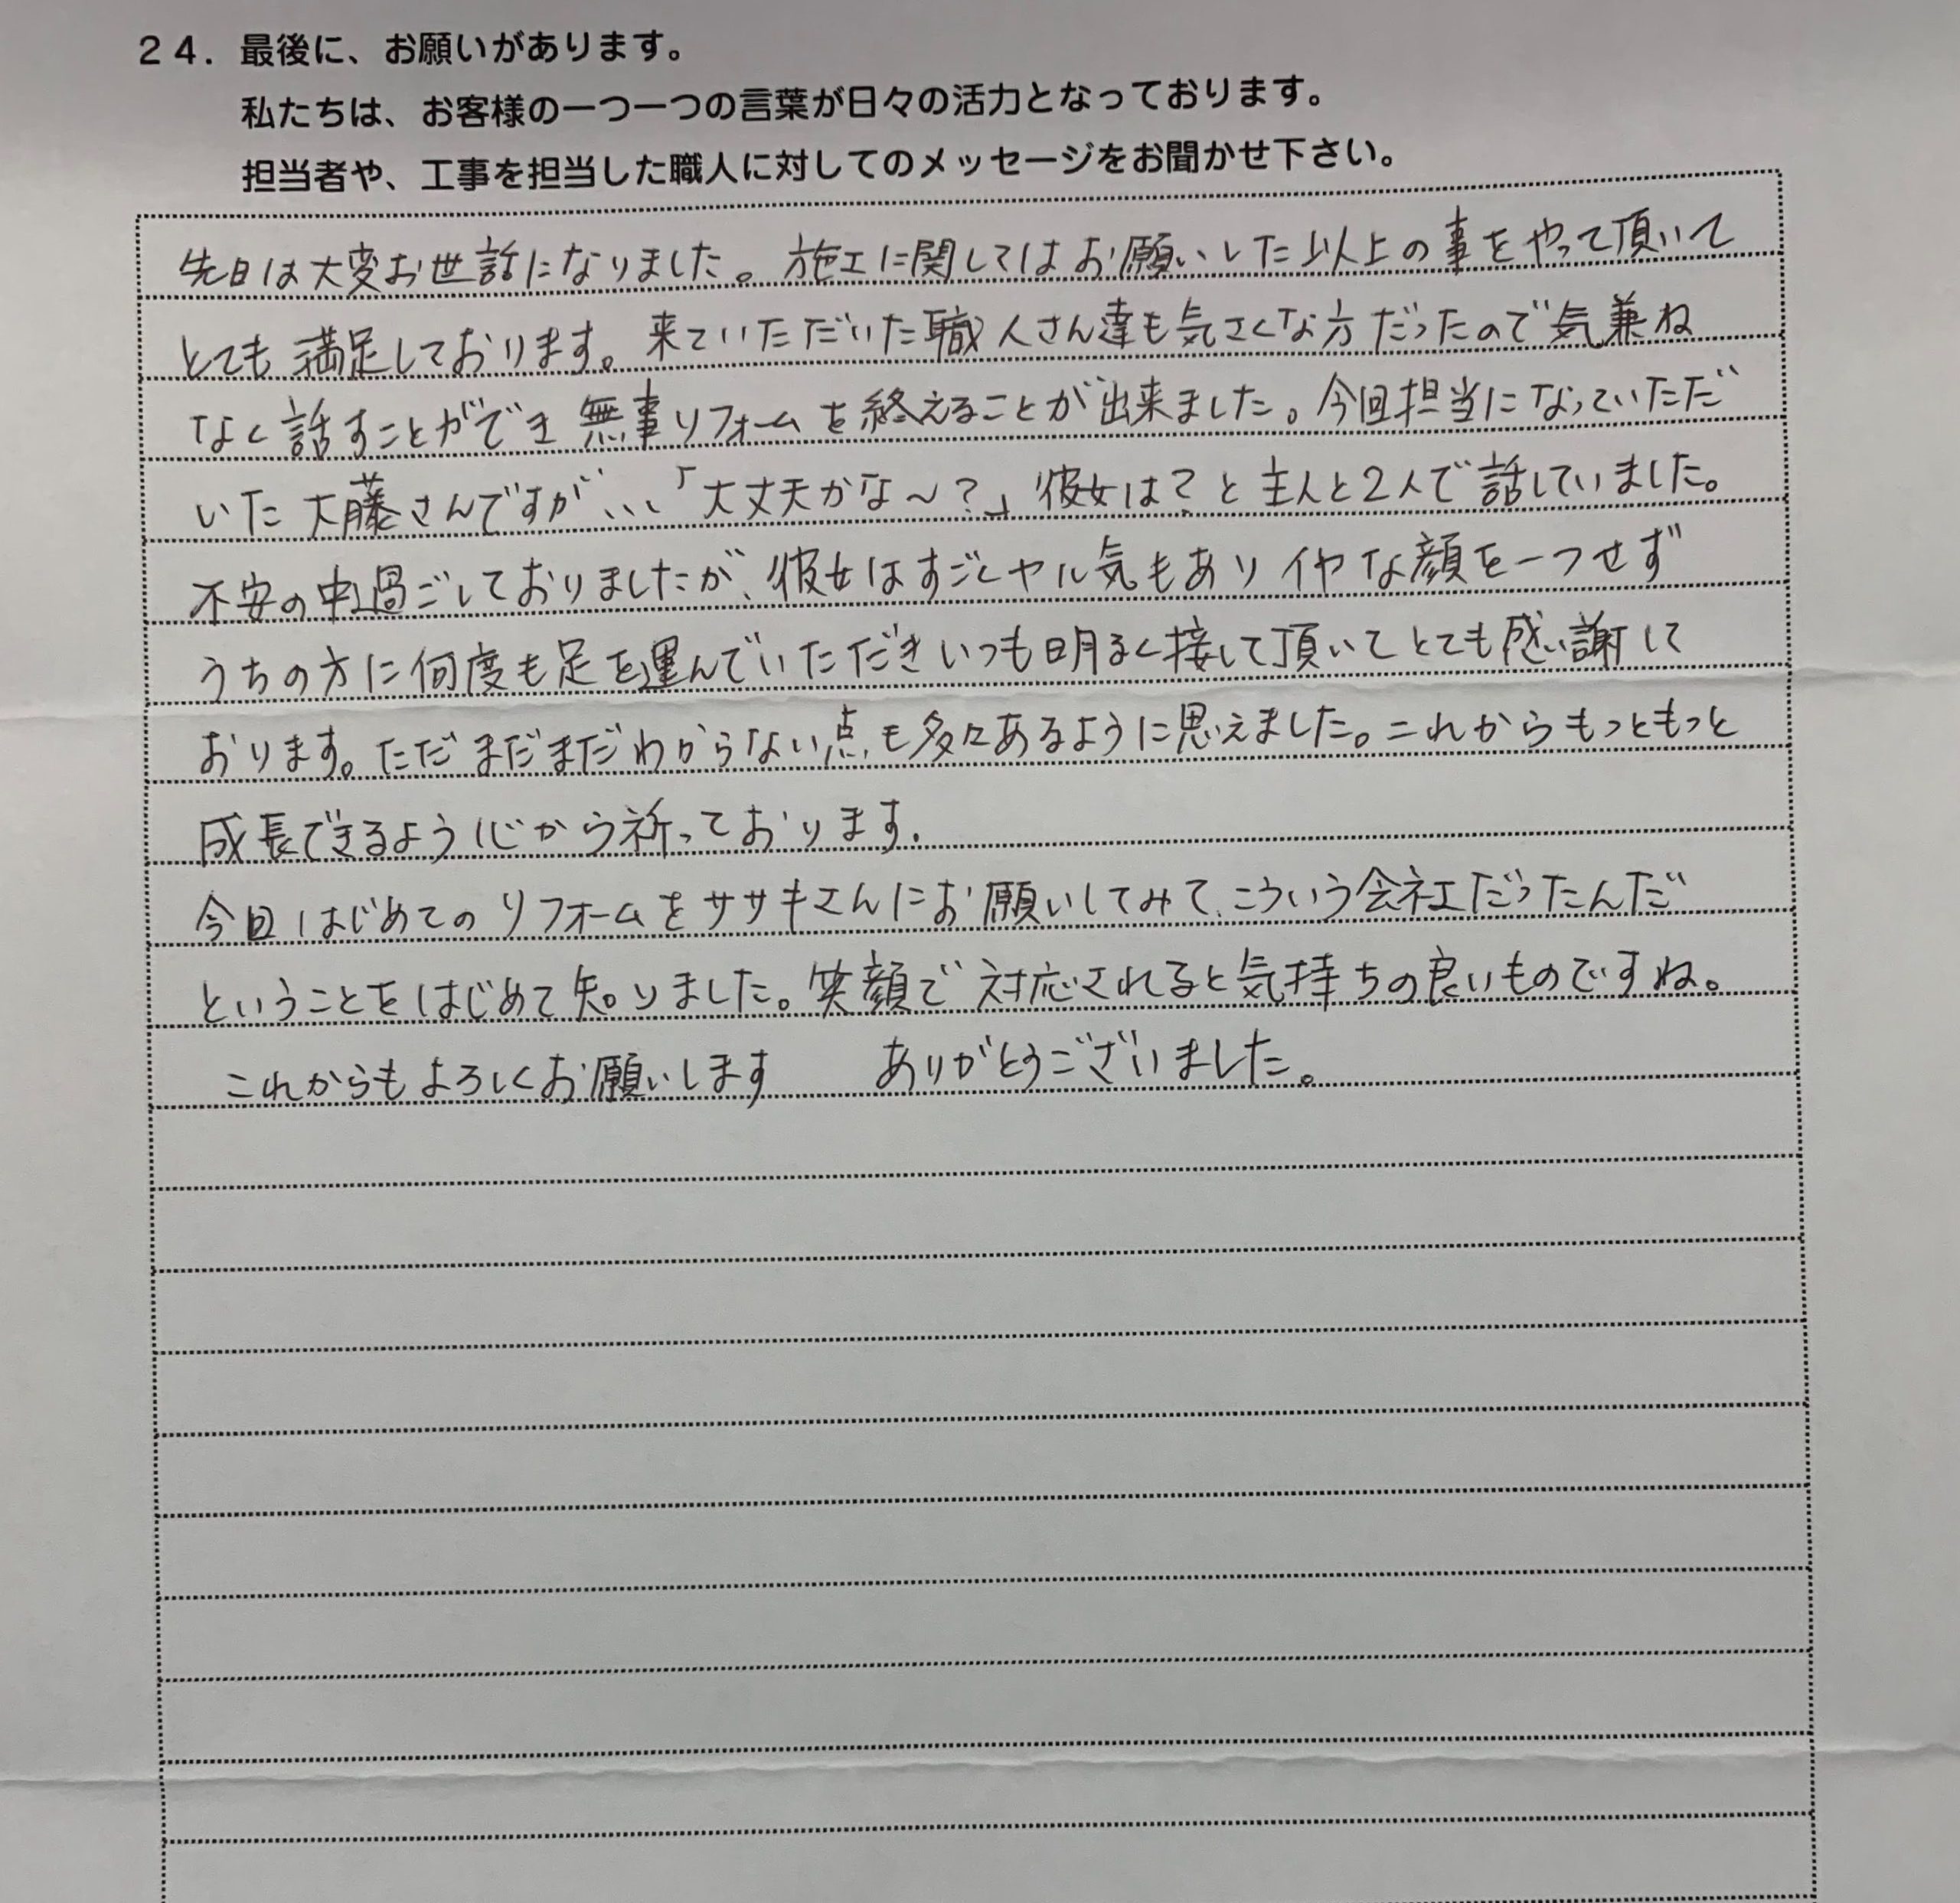 24. 最後に、お願いがあります。
私たちは、お客様の一つ一つの言葉が日々の活力となっております。
担当者や、工事を担当した職人に対してのメッセージをお聞かせ下さい。
先日は大変お世話になりました。施工に関してはお願いした以上の事をやって頂いて
とても満足しております。来ていただいた職人さん達も気さくな方だったので気兼ね
なく話すことができ無事リフォームを終えることが出来ました。今回担当になっていただ
いた大藤さんですが、、、「大丈夫かな〜？」彼女は？と主人と2人で話していました。
不安の中過ごしておりましたが、彼女はすごくヤル気もありイヤな顔を一つせず
うちの方に何度も足を運んでいただきいつも明るく接して頂いてとても感謝して
おります。ただまだまだわからない点も多々あるように思えました。これからもっともっと
成長できるよう心から祈っております.
今回はじめてのリフォームをササキさんにお願いしてみて、こういう会社だったんだ
ということをはじめて知りました。笑顔で対応されると気持ちの良いものですね。
これからもよろしくお願いします　ありがとうございました。